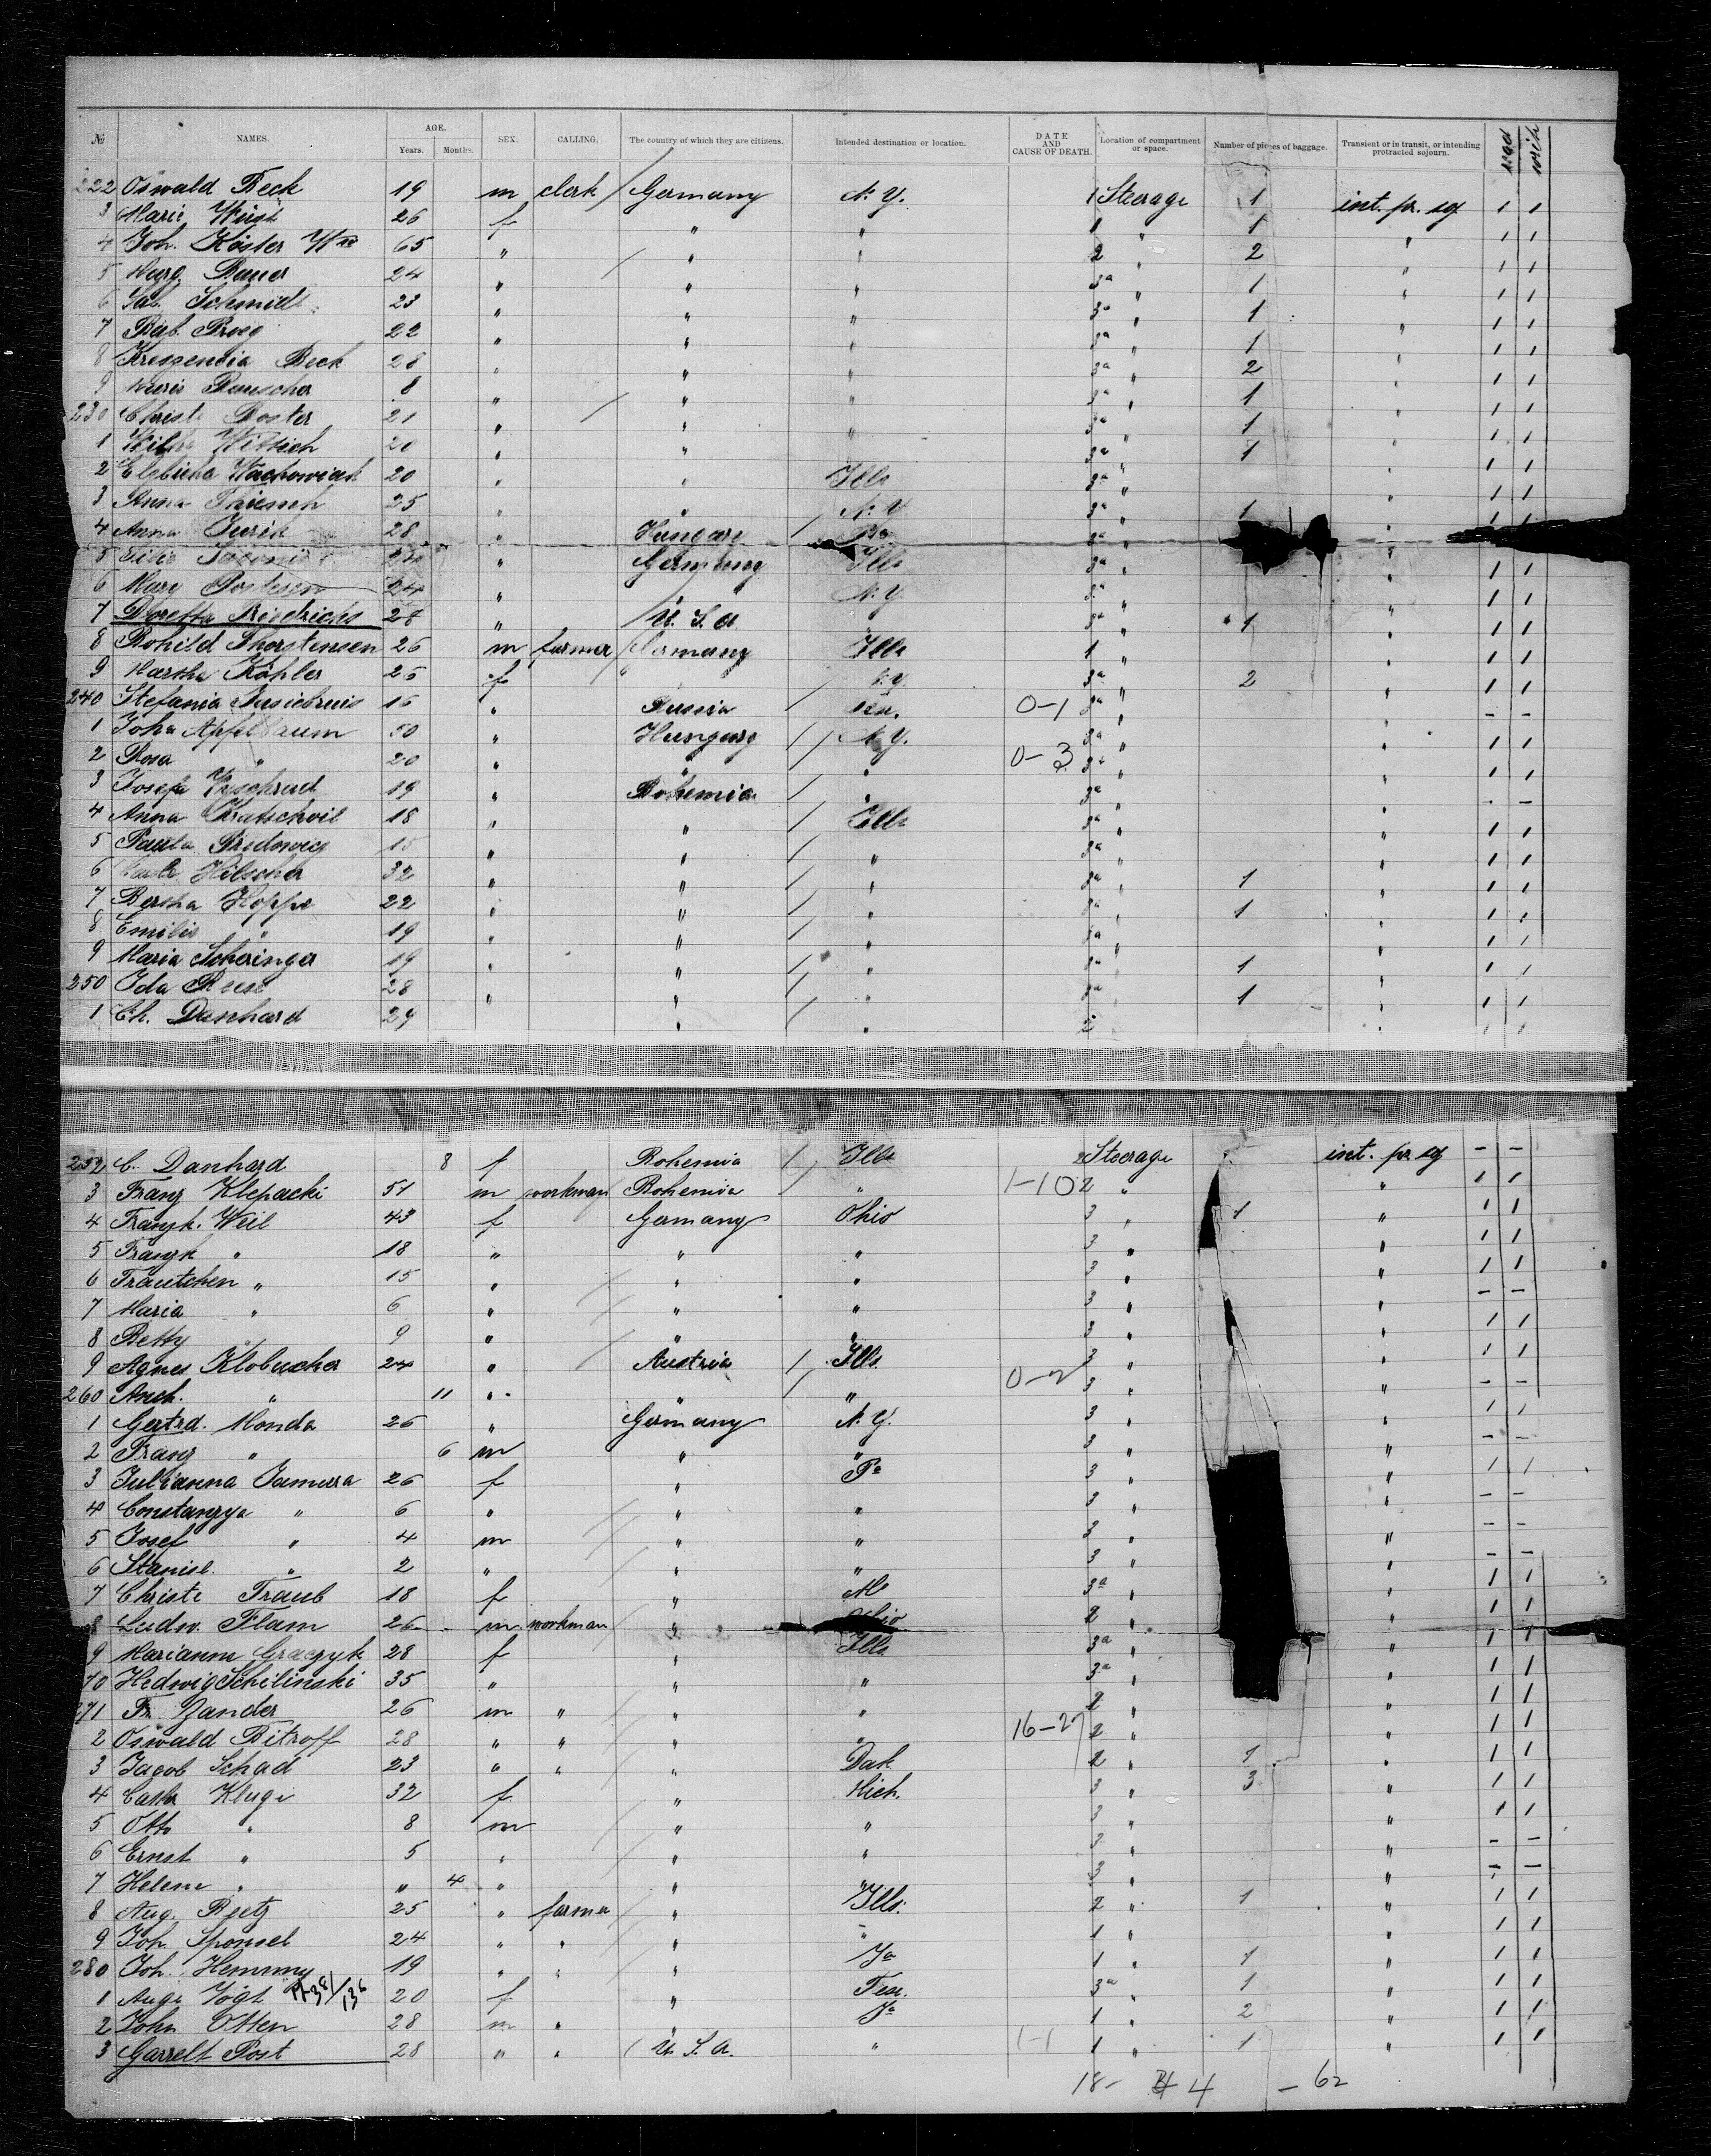 № NAMES. AGE. Years. Months. SEX. CALLING. The country of which they are citizens. Intended destination or location. DATE AND CAUSE OF DEATH. Location of compartment or space. Number of pieces of baggage. Transient or in transit, or intending protracted sojourn. read writ
222 Oswald Beck 19 m clerk / Germany N. Y. 1 Steerage 1 int. pr. sg 1 1
3 Marie Wüst 26 f " " 1 " 1 " 1 1
4 Joh. Köster Wwe 65 " " " 2 " 2 " 1 1
5 Marg. Bauer 24 " " " 3a " 1 " 1 1
6 Schmidt 23 " " " 3a " 1 " 1 1
7 Barb. 22 " " " 3a " 1 " 1 1
8 Kreszentia Beck 28 " " " 3a " 2 " 1 1
9 Rauscher 8 " " " 3a " 1 " 1 1
230 Christ. Boster 21 " " " 3a " 1 " 1 1
1 Wittich 20 " " " 3a " 1 " 1 1
2 Wachowiak 20 " " Ills 3a " " 1 1
3 Anna 25 " " N. Y 3a " 1 " 1 1
4 Anna Jurik 28 " Hungary / 3a "
5 " Germany Ills 3a " " 1 1
6 Mary 24 " N. Y. 3a " " 1 1
7 Doretta Friedrichs 28 " U. S. A " 3a " 1 " 1 1
8 Bohild Thorstensen 26 m farmer / Germany Ills 1 " " 1 1
9 Martha Köhler 25 f " N. Y. 3a " 2 " 1 1
240 Stefania 16 " Russia / 0-1 3a " " - -
1 Joha Apfelbaum 50 " Hungary / / N. Y. 3a " " 1 1
2 Rosa " 20 " " " 0-3 3a " " 1 1
3 Josefa 19 " Bohemia / " 3a " " - -
4 Anna Kratschvil 18 " " / Ills 3a " " 1 1
5 Paula 15 " " / " 3a " " 1 1
6 Hilscher 32 " " / " 3a " 1 " 1 1
7 Bertha Hoppe 22 " " / " 3a " 1 " 1 1
8 Emilie " 19 " " / " 3a " " 1 1
9 Maria Scheringer 19 " " / " 3a " 1 " 1 1
250 Ida 28 " " / " 3a " 1 " 1 1
1 Ch. Danhard 29 " " 2 " 1 1
252 C. Danhard 8 f Bohemia / Ills 2 Steerage int. pr. sg - -
3 Franz Klepacki 51 m workman Bohemia / " 1-10 2 " " 1 1
4 Franzk. Weil 43 f Germany Ohio 3 " 1 " 1 1
5 Franzk " 18 " " " 3 " " 1 1
6 Trautchen " 15 " " " 3 " " 1 1
7 Maria " 6 " " " 3 " " - -
8 Betty 9 " " " 3 " " 1 1
9 Agnes Klobucher 24 " Austria / Ills 3 " " 1 1
260 Anch. " 11 " " / " 0-2 3 " " - -
1 Gertrd. Monda 26 " Germany N. Y. 3 " " 1 1
2 Franz " 6 m " " 3 " " - -
3 Julianna Jamura 26 f " Pa 3 " " 1 1
4 Constanzya " 6 " " " 3 " " - -
5 Josef " 4 m " " 3 " " - -
6 Stanisl. " 2 " " " 3 " " - -
7 Christe Traub 18 f " 3a " " 1 1
8 Ludw. Flam 26 m workman " Ohio 2 " " 1 1
9 Marianne Graczyk 28 f " Ills 3a " " 1 1
70 Hedwig Schilinski 35 " " " 3a " " 1 1
271 Fr. Zander 26 m " " " 2 " " 1 1
2 Oswald Bitroff 28 " " " " 16-27 2 " " 1 1
3 Jacob Schad 23 " " " Dak 2 " 1 " 1 1
4 Kluge 32 f " Mich. 3 " 3 " 1 1
5 Otto " 8 m " " 3 " " 1 1
6 Ernst " 5 " " " 3 " " - -
7 Helene " " 4 " " " 3 " " - -
8 Aug. Reetz 25 " farmer " Ills. 2 " 1 " 1 1
9 Joh. Sponsel 24 " " " " 1 " " 1 1
280 Joh. Hemmy 19 " " " Ja 1 " 1 " 1 1
1 Auge Vogt 20 f " Tex. 3a " 1 " 1 1
2 John Otten 28 m " " Ja 1 " 2 " 1 1
3 Garrelt Post 28 " " / U. S. A. " 1-1 1 " 1 " 1 1
18- 4 - 62